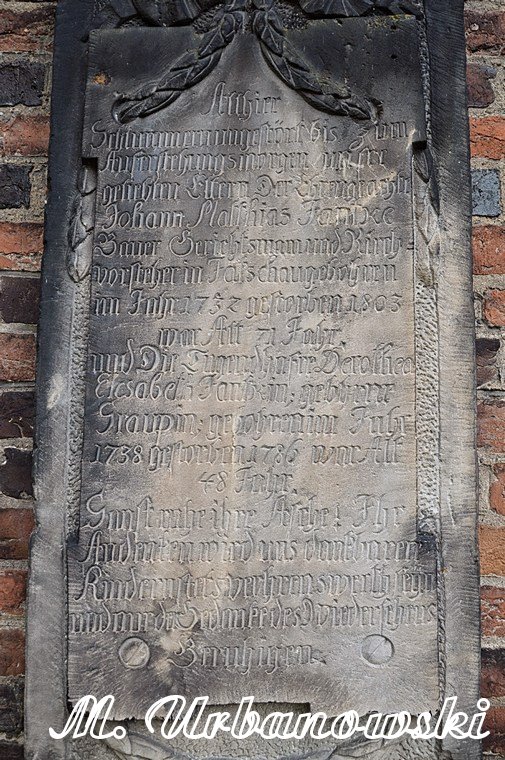 Allhier
Schlummern ungestört bis zum
Auferstehungsmorgen unsre
geliebten Eltern Der Ehrengeachte
Johann Matthias
Bauer Gerichtsmann und Kirch=
vorsteher in Tatschau gebohren
im Jahr 1732 gestorben 1803
war Alt 71 Jahr.
und Die Tugendhafte Dorothea
Elesabeth gebohrne
Graupin; gebohren im Jahr
1738 gestorben 1786 war Alt
48 Jahr.
Sanft ruhe ihre Asche! Ihr
Andenken wird uns dankbaren
Kindern stets verehrenswerth seyn
und nur der Gedanke des Wiedersehns
Beruhigen.
M. Urbanowski